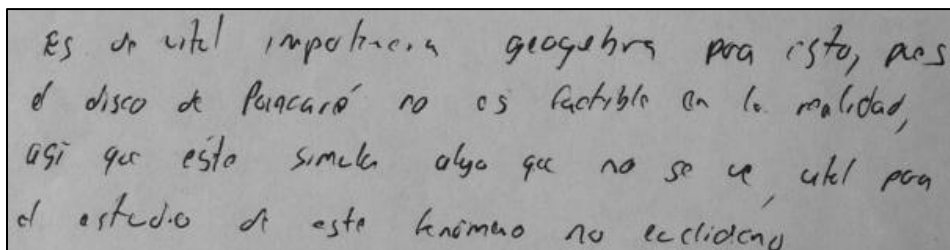 Es de vital importancia geogebra para esto, pues
el disco de Poincaré no es factible en la realidad,
asi que esto simula algo que no se ve, util para
el estudio de este fenómeno no euclidiano